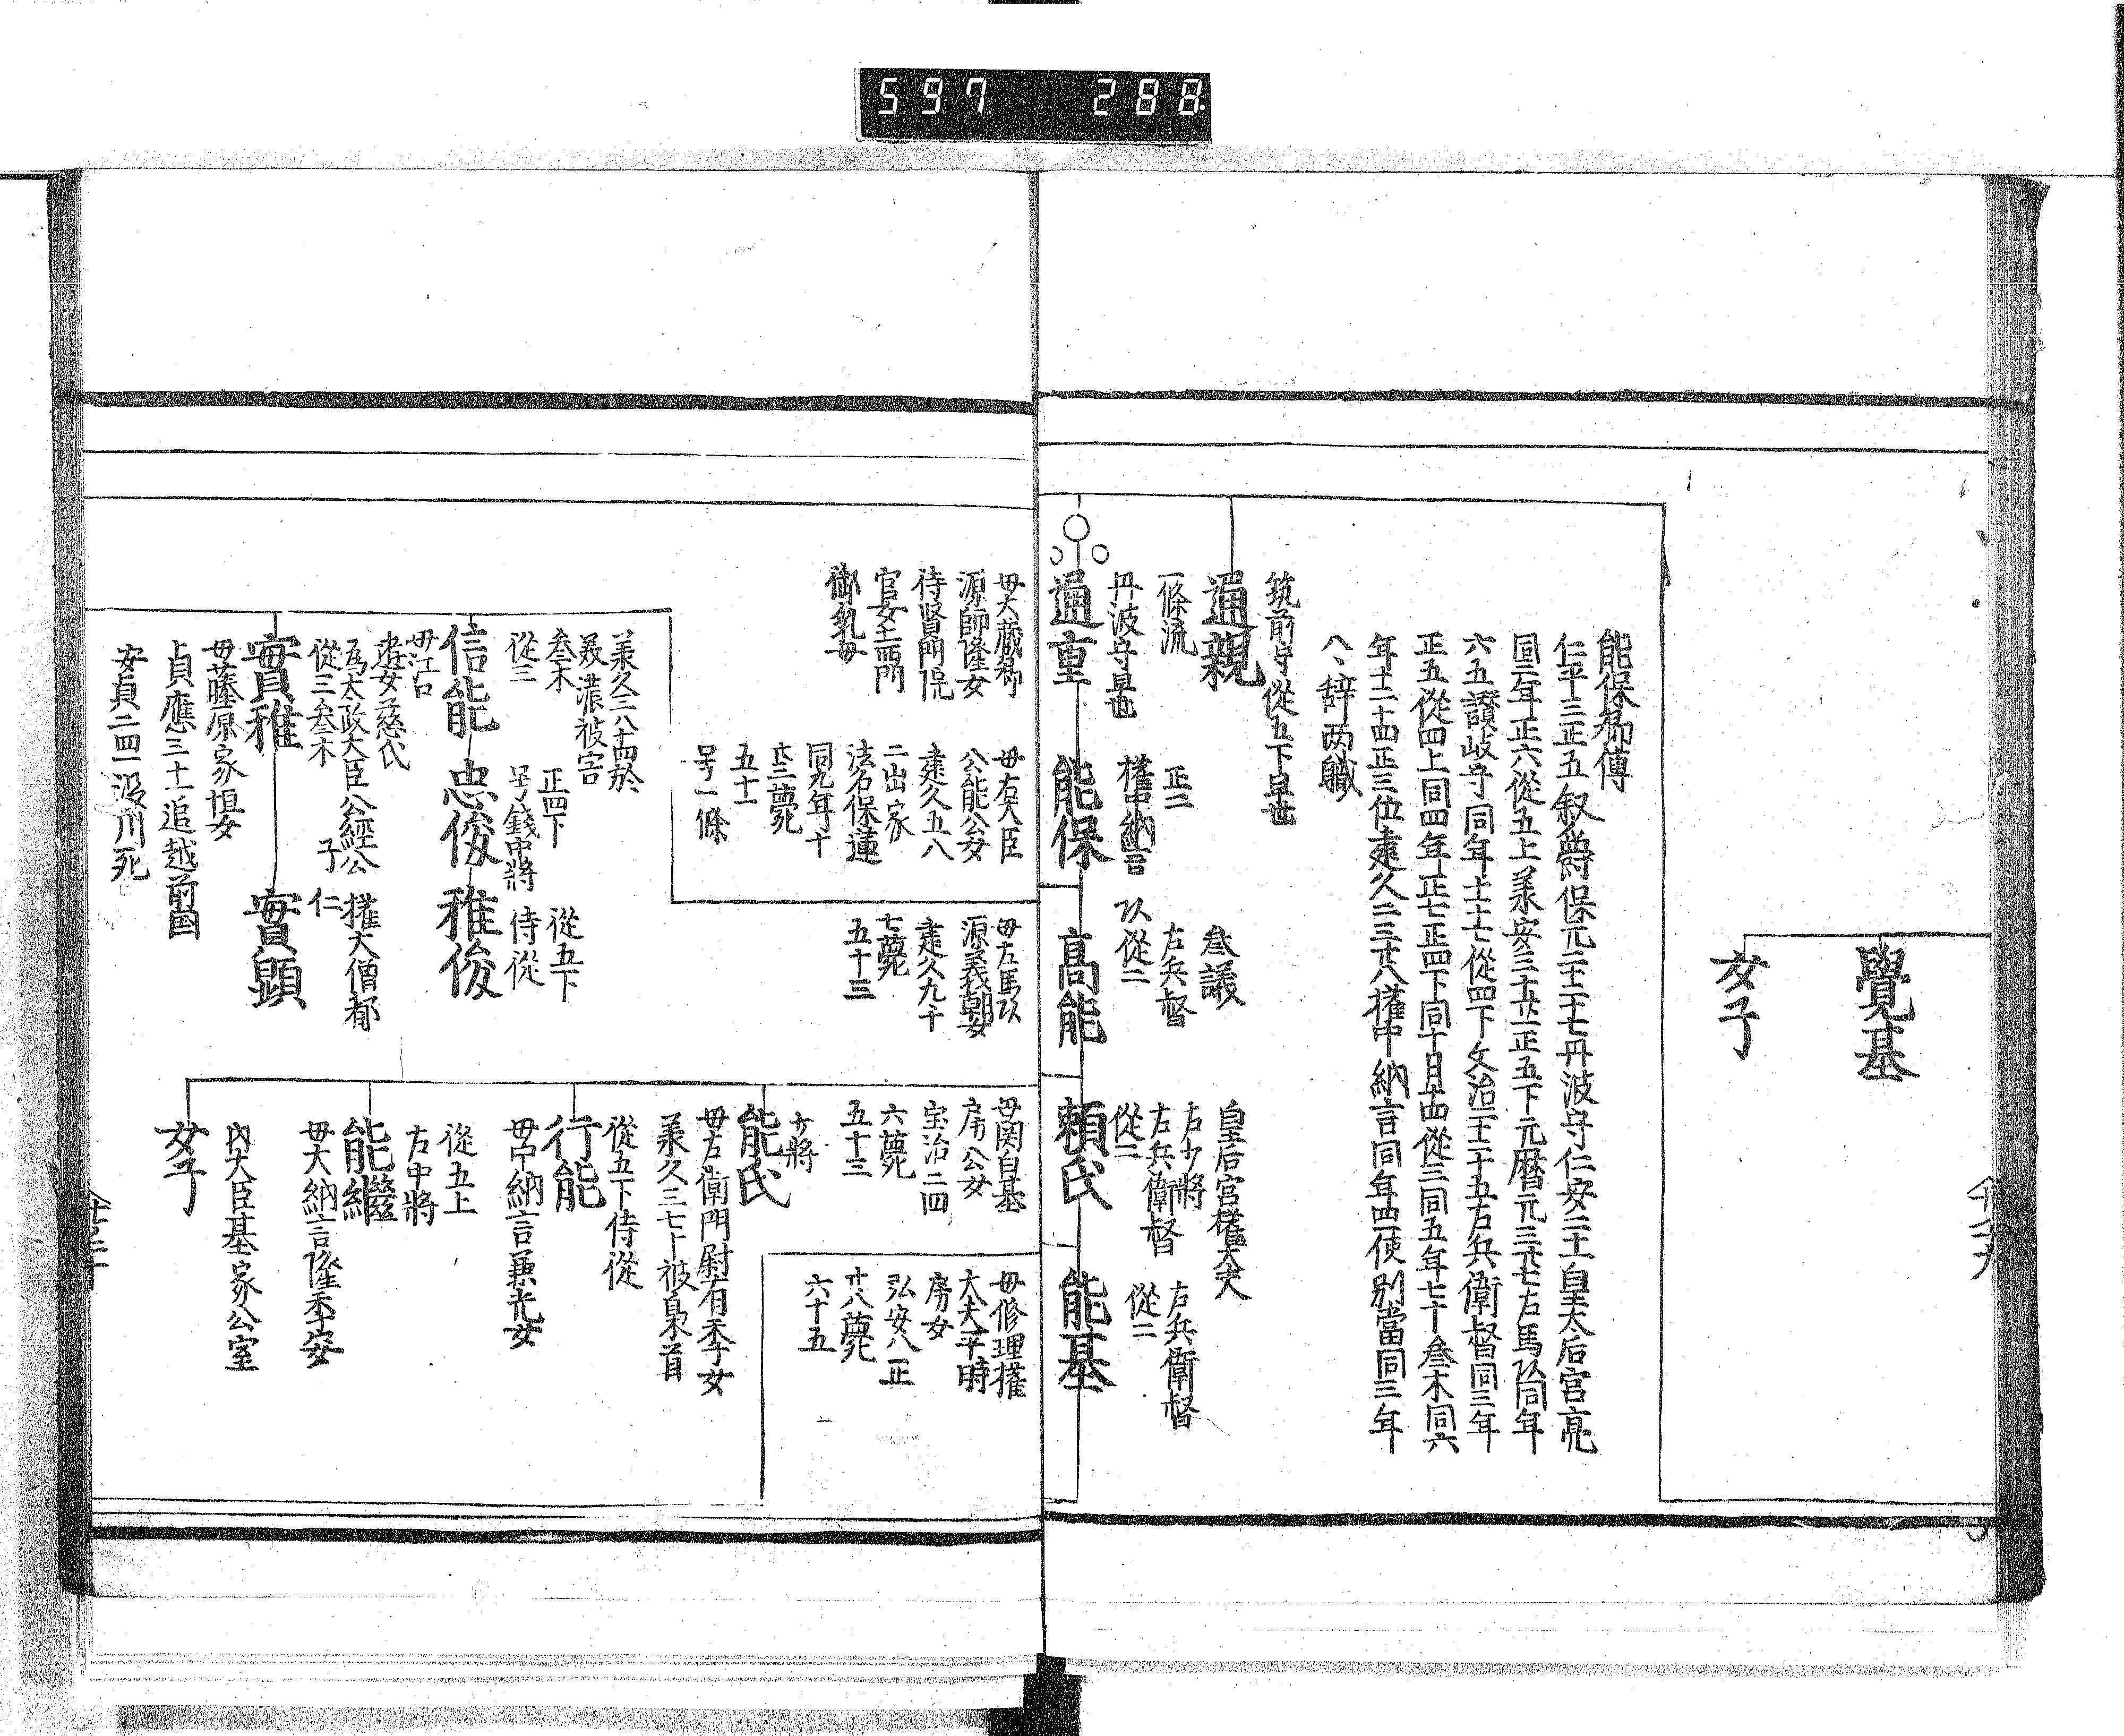 597 288
覺基
女子
能保卿傳
仁平三正五叙爵保元二十二十七丹波守仁安二十一皇太后宮亮
同三年正六從五上承安三十廿一正五下元曆元三廿七右馬頭同年
六五讃岐守同年十二十七從四下文治二十二十五右兵衛督同三年
正五從四上同四年正七正四下同十月十四從三同五年七十叅木同六
年十二十四正三位建久二三廿八權中納言同年四一使別當同三年
八、辞两職
筑前守從五下早世
通親
一條流
丹波守早世
通重
正二
權中納言
能保
叅議
左兵督
從二
高能
皇后宮權大夫
右少將
右兵衛督
從三
頼氏
右兵衛督
從二
能基
母大蔵卿
源師隆女
待賢門院
官女土西門
御乳母
母右大臣
公能公女
建久五八
二出家
法名保蓮
同九年十
廿三薨
五十一
号一條
母左馬頭
源義朝女
建久九十
七薨
五十三
母関白基
房公女
宝治二四
六薨
五十三
母修理權
大夫平時
房女
弘安八正
廿八薨
六十五
承久三八十四於
美濃被害
叅木
從三
信能
正四下
号錢中將
忠俊
從五下
侍從
稚俊
母江口
遊女慈代
為太政大臣公經公
子
從三叅木
實稚
權大僧都
仁
實顕
母藤原家恒女
貞應三十一追越前国
安貞二四一没川死
少將
能氏
母右衛門尉有季女
承久三七十被梟首
從五下侍從
行能
母中納言兼光女
從五上
右中將
能繼
母大納言隆季女
内大臣基家公室
女子